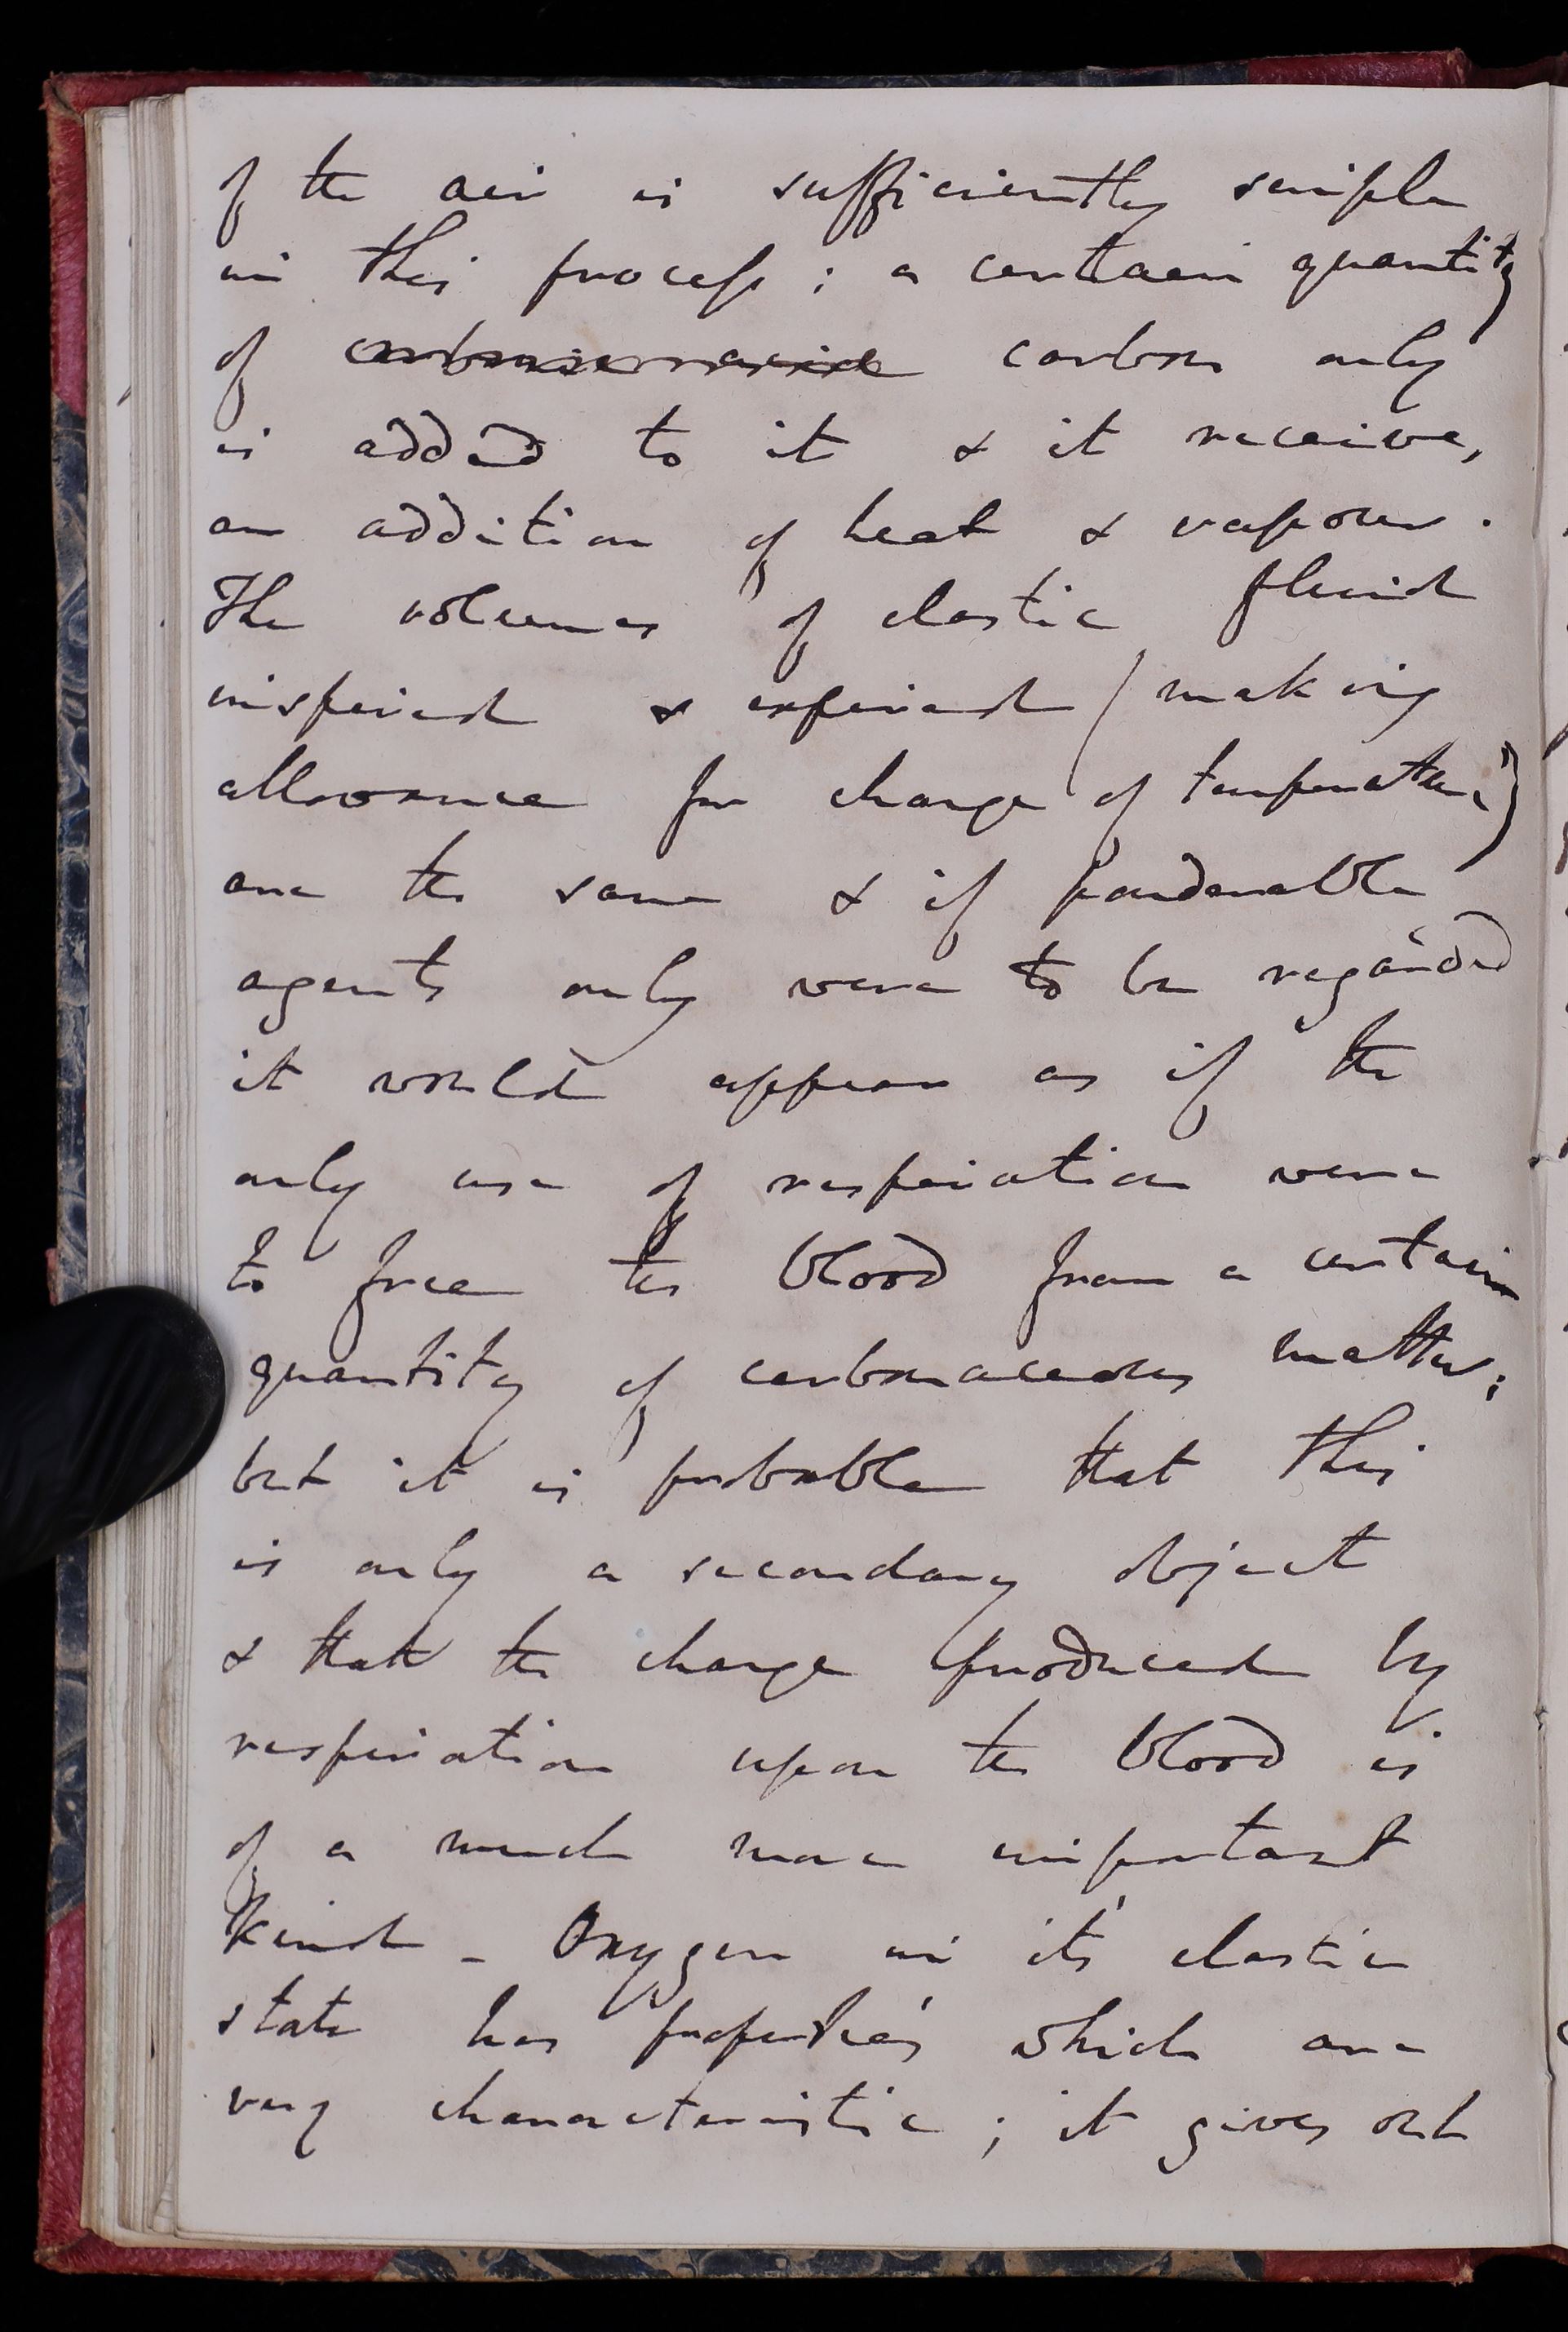 of the air is sufficiently simple
in this process; a certain quantity
of carbonic acid carbon only
is added to it & it receives
an addition of heat & vapour.
The volumes of elastic fluid
inspired & expired (making
allowance for change of temperature)
are the same & if ponderable
agents only were to be regarded
it would appear as if the
only use of respiration were
to free the blood from a certain
quantity of carbonaceous matter;
but it is probable that this
is only a secondary object
& that the change produced by
respiration upon the blood is
of a much more important
kind - Oxygen in it's elastic
state has properties which are
very characteristic; it gives out